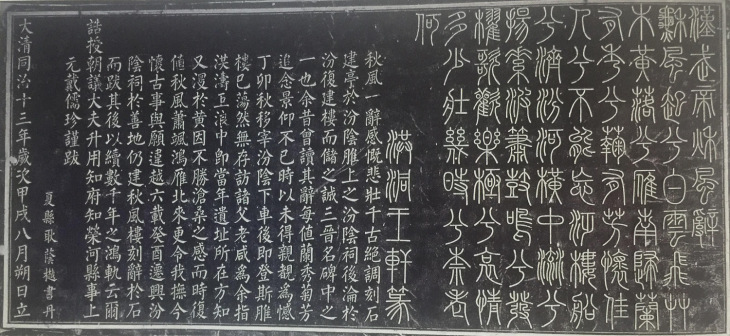 漢武帝秋風辭
秋風起兮白雲飛艸
木黃落兮雁南歸蘭
有秀兮菊有芳懷佳
人兮不能忘泛樓船
兮濟汾河橫中流兮
揚素波簫鼓鳴兮發
櫂歌歡樂極兮哀情
多少壯幾時兮奈老
何
洪洞王軒篆
秋風一辭感慨悲壯千古絕調刻石
建亭於汾陰脽上之汾陰祠後淪於
汾復建樓而儲之誠三晉名碑中之
一也余昔曾讀其辭每值蘭秀菊芳
追念景仰不已時以未得親覩為憾
丁卯秋移宰汾陰下車後即登斯脽
樓已蕩然無存訪諸父老咸為余指
洪濤巨浪中即當年遺址所在方知
又漫於黃因不勝滄桑之感而時復
值秋風蕭颯鴻雁北來更令我撫今
懷古事與願違越六載癸酉遷興汾
陰祠於善地仍建秋風樓刻辭於石
而跋其後以續數千年之鴻軌云爾
誥授朝議大夫升用知府知榮河縣事上
元戴儒珍謹跋
夏縣耿蔭樾書丹
大清同治十三年歲次甲戌八月朔日立